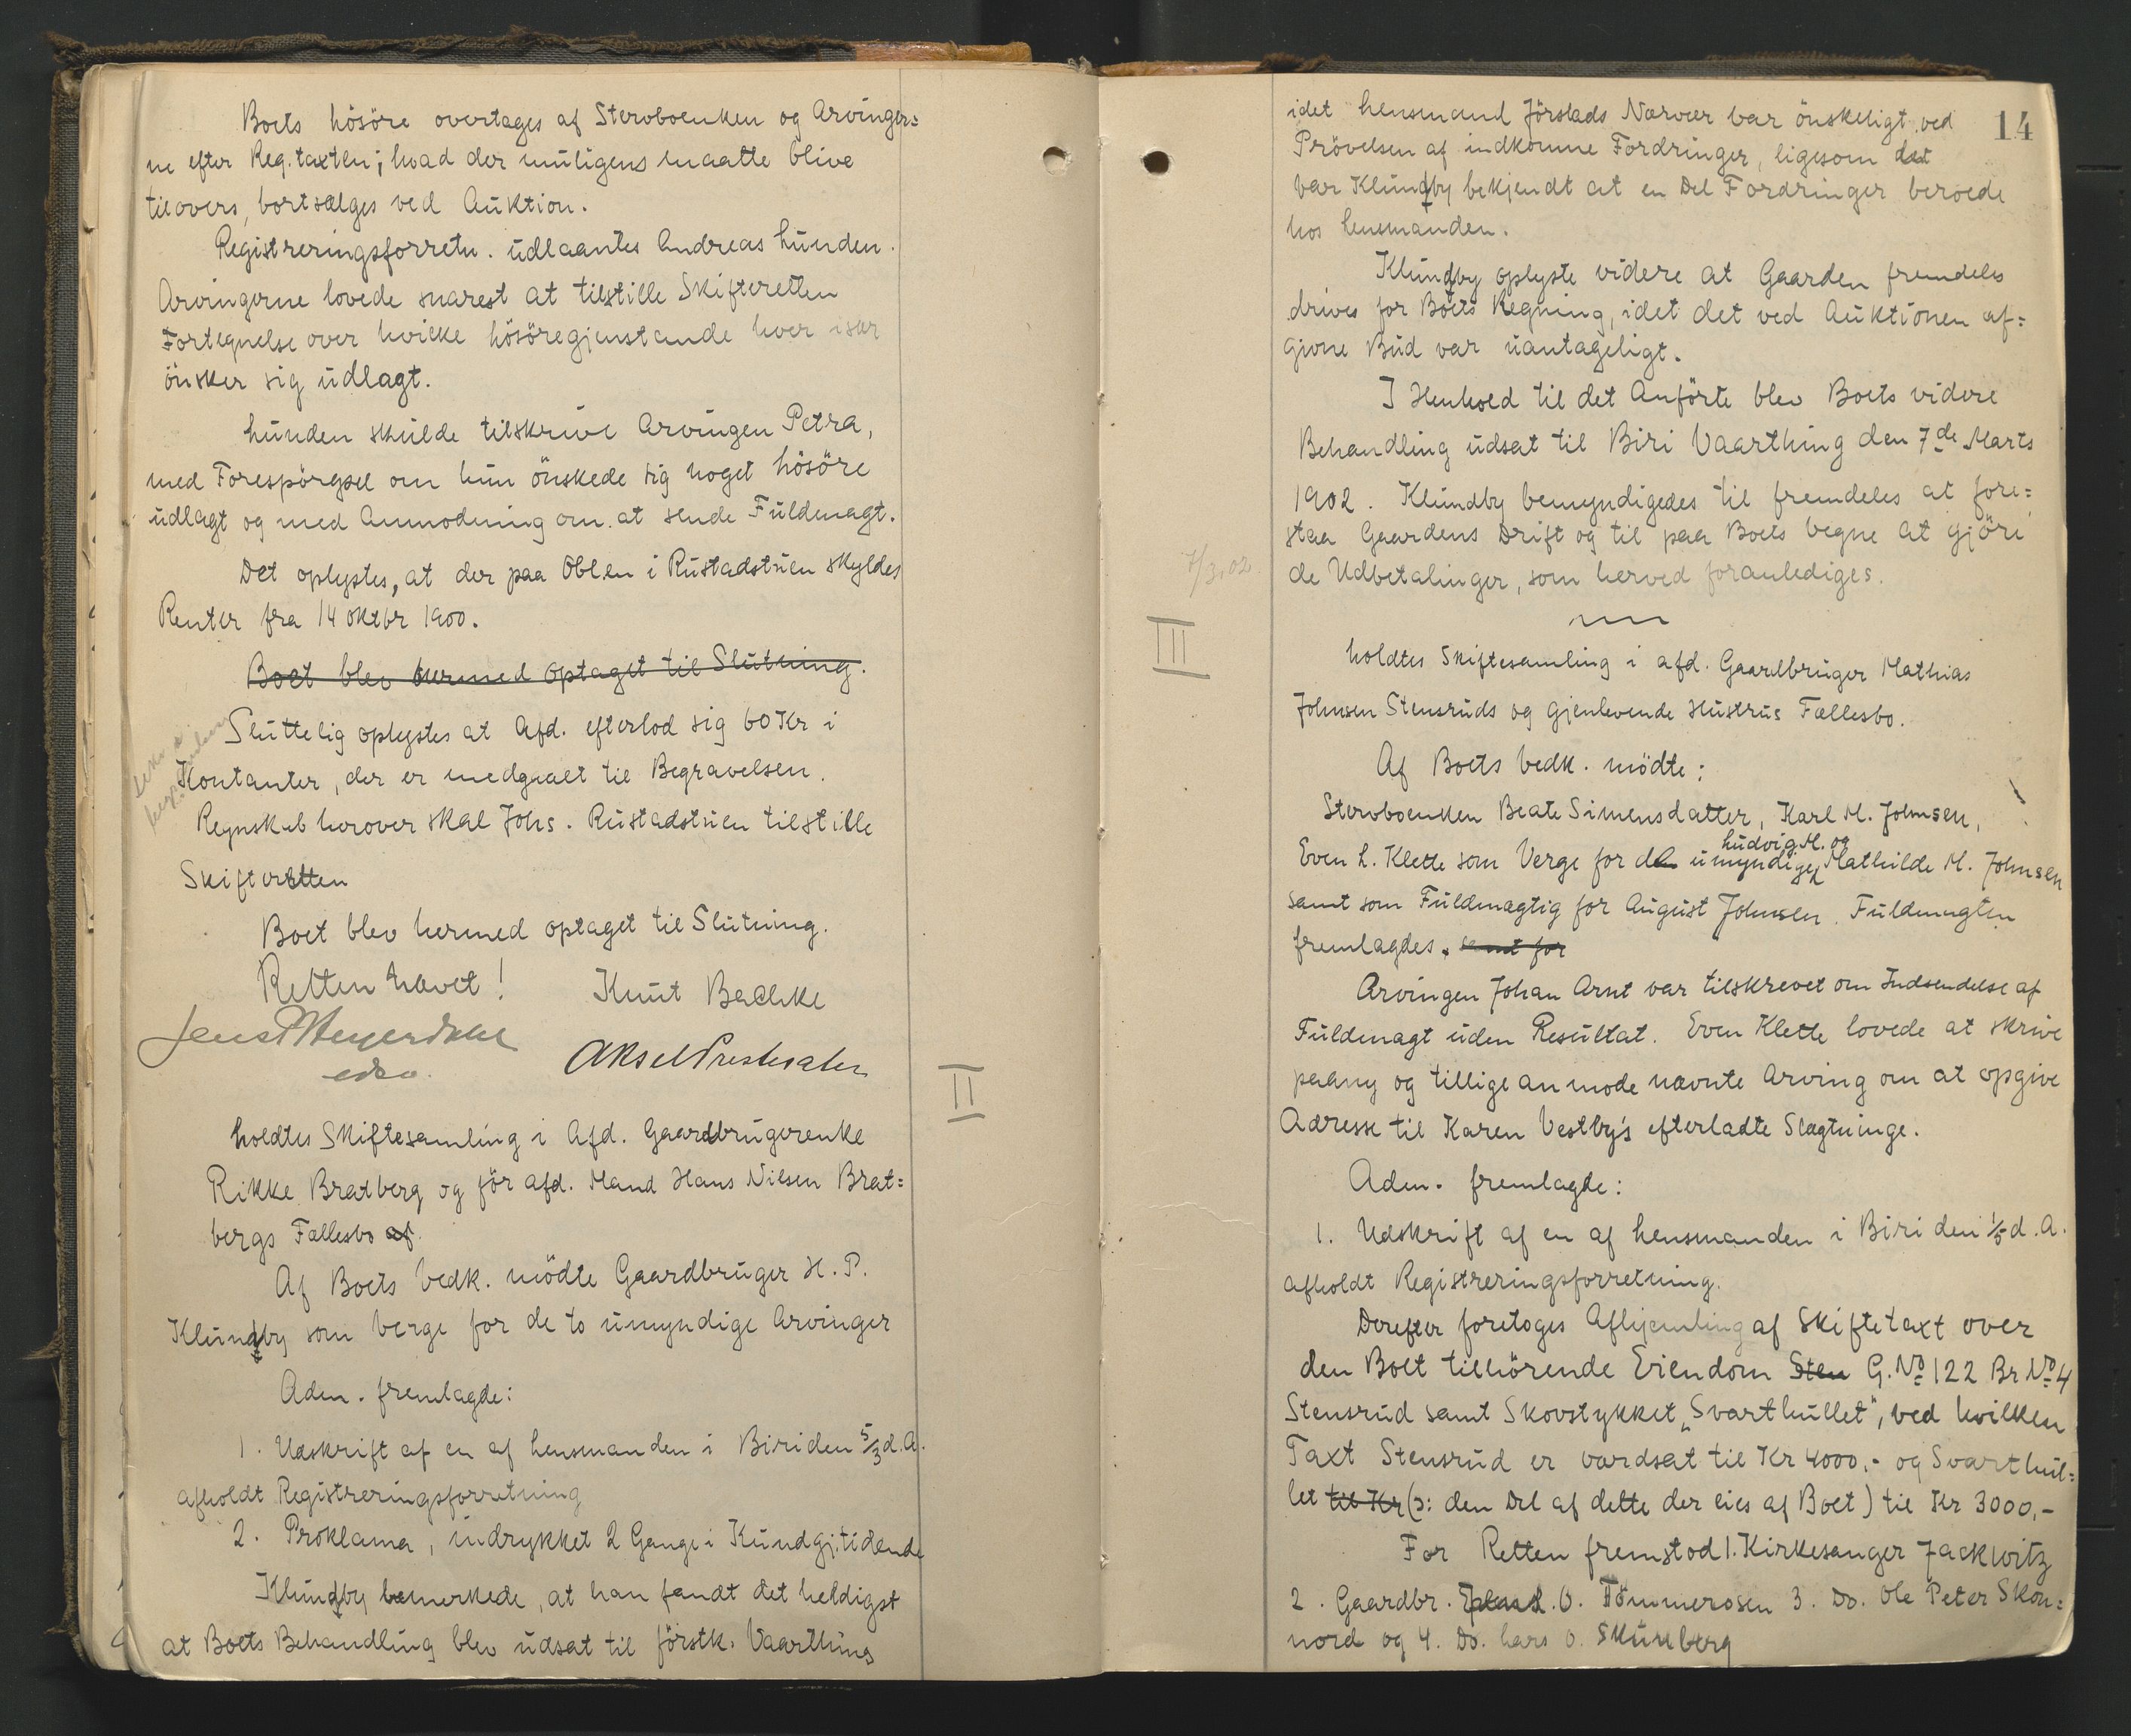 Boets Lösöre overtages af Stervboenken og Arvinger=
ne efter Reg. taxten; hvad der muligens maatte blive
tilovers, bortsælges ved Auktion.
Registreringsforretn. udlaantes Andreas Lunden.
Arvingerne lovede snarest at tilstille Skifteretten
Fortegnelse over hvilke Lösöregjenstande hver især
önsker sig udlagt.
Lunden skulde tilskrive Arvingen Petra,
med Forespörgsel om hun önskede sig noget Lösöre
udlagt og med Anmodning om at sende Fuldmagt.
Det oplystes, at der paa Oblen i Rustadstuen skyldes
Renter fra 14 Oktbr 1900.
Boet blev hermed optaget til Slutning.
Sluttelig oplystes at Afd. efterlod sig 60 Kr i
Kontanter, der er medgaaet til Begravelsen.
Regnskab herover skal Johs. Rustadstuen tilstille
Skifteretten
Boet blev hermed optaget til Slutning.
Retten hævet!
Knut Bachke
Aksel Prestesater
II
Holdtes Skiftesamling i Afd. Gaardbrugerenke
Rikke Bratberg og för afd. Mand Hans Nilsen Brat=
bergs Fællesbo af.
Af Boets Vedk. mödte Gaardbruger H. P.
Klundby som Verge for de to umyndige Arvinger
Adm. fremlagde:
1. Udskrift af en af Lensmanden i Biri den 5/3 d. A.
afholdt Registreringsforretning
2. Proklama, indrykket 2 Gange i Kundgj.tidende
Klundby bemerkede, at han fandt det heldigst
at Boets Behandling blev udsat til förstk. Vaarthing
14
idet Lensmand Jörstads Nærvær var önskeligt ved
Prövelsen af indkomne Fordringer, ligesom det
var Klundby bekjendt at en Del Fordringer beroede
hos Lensmanden.
Klundby oplyste videre at Gaarden fremdeles
drives for Boets Regning, idet det ved Auktionen af=
givne Bud var uantageligt.
I Henhold til det Anförte blev Boets videre
Behandling udsat til Biri Vaarthing den 7de Marts
1902. Klundby bemyndigedes til fremdeles at fore=
staa Gaardens Drift og til paa Boets Vegne at gjöre
7/3.02
de Udbetalinger, som herved foranlediges.
III
Holdtes Skiftesamling i afd. Gaardbruger Mathias
Johnsen Stensruds og gjenlevende Hustrus Fællesbo.
Af Boets Vedk. mödte:
Stervboenken Beate Simensdatter, Karl M. Johnsen,
Ludvig M. og
Even L. Klette som Verge for de umyndige Mathilde M. Johnsen
samt som Fuldmægtig for August Johnsen. Fuldmagten
fremlagdes. samt for
Arvingen Johan Arnt var tilskrevet om Indsendelse af
Fuldmagt uden Resultat. Even Klette lovede at skrive
paany og tillige anmode nævnte Arving om at opgive
Adresse til Karen Vestby's efterladte Slægtninge.
Adm. fremlagde:
1. Udskrift af en af Lensmanden i Biri den 1/5 d. A.
afholdt Registreringsforretning.
Derefter foretoges Afhjemling af Skiftetaxt over
den Boet tilhörende Eiendom Sten G. No 122 Br No 4
Stensrud samt Skovstykket "Svarthullet", ved hvilken
Taxt Stensrud er værdsat til Kr 4000,- og Svarthul=
let til Kr (ɔ: den Del af dette der eies af Boet) til Kr 3000,-
For Retten fremstod 1. Kirkesanger Jackwitz
2. Gaardbr. O. Tömmerosen 3. Do. Ole Peter Skon=
nord og 4. Do. Lars O. Skurberg